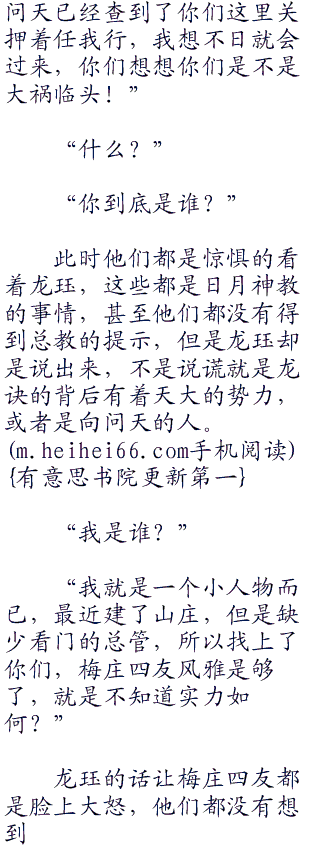 问天已经查到了你们这里关
押着任我行，我想不日就会
过来，你们想想你们是不是
大祸临头！”
“什么？”
“你到底是谁？”
此时他们都是惊惧的看
着龙珏，这些都是日月神教
的事情，甚至他们都没有得
到总教的提示，但是龙珏却
是说出来，不是说谎就是龙
诀的背后有着天大的势力，
或者是向问天的人。
(m.heihei66.com手机阅读)
{有意思书院更新第一}
“我是谁？”
“我就是一个小人物而
已，最近建了山庄，但是缺
少看门的总管，所以找上了
你们，梅庄四友风雅是够
了，就是不知道实力如
何？”
龙珏的话让梅庄四友都
是脸上大怒，他们都没有想
到